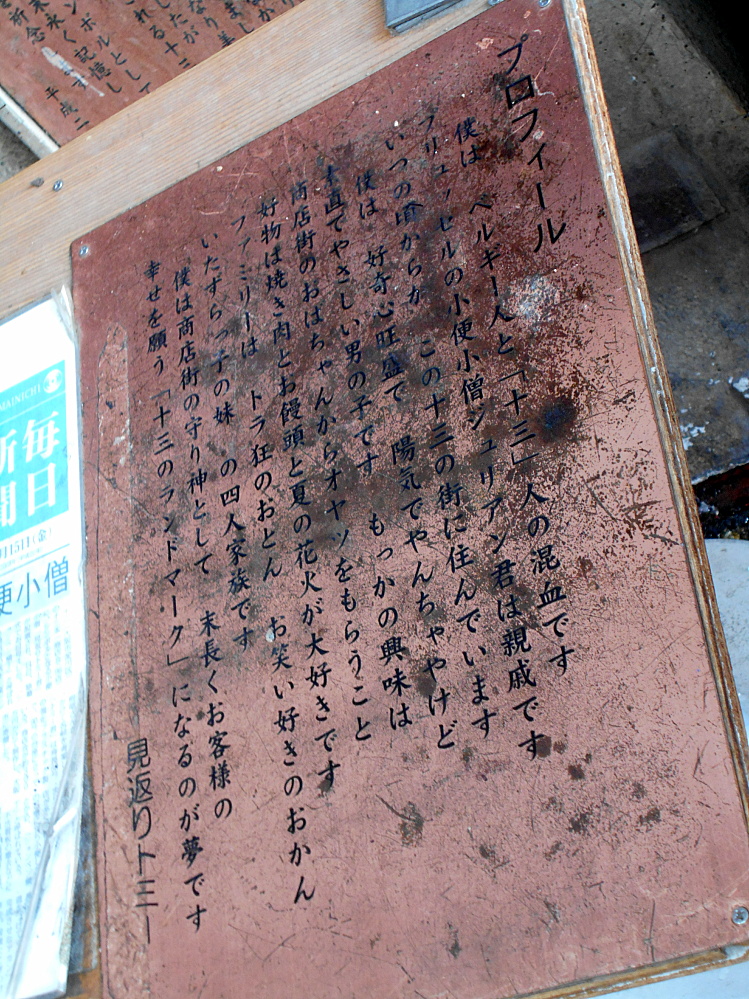 プロフィール
僕は ベルギー人と「十三」人の混血です
ブリュッセルの小便小僧ジュリアン君は親戚です
いつの頃からか この十三の街に住んでいます
僕は 好奇心旺盛で 陽気でやんちゃやけど
素直でやさしい男の子です もっかの興味は
商店街のおばちゃんからオヤツをもらうこと
好物は焼き肉とお饅頭と夏の花火が大好きです
ファミリーは トラ狂のおとん お笑い好きのおかん
いたずらっ子の妹 の四人家族です
僕は商店街の守り神として 末長くお客様の
幸せを願う「十三のランドマーク」になるのが夢です
見返りトミー
したが
れる十三
ンボルとして
末永く記憶し
を祈念
平成二
MAINICHI
毎日
新聞
月15日(金)
便小僧